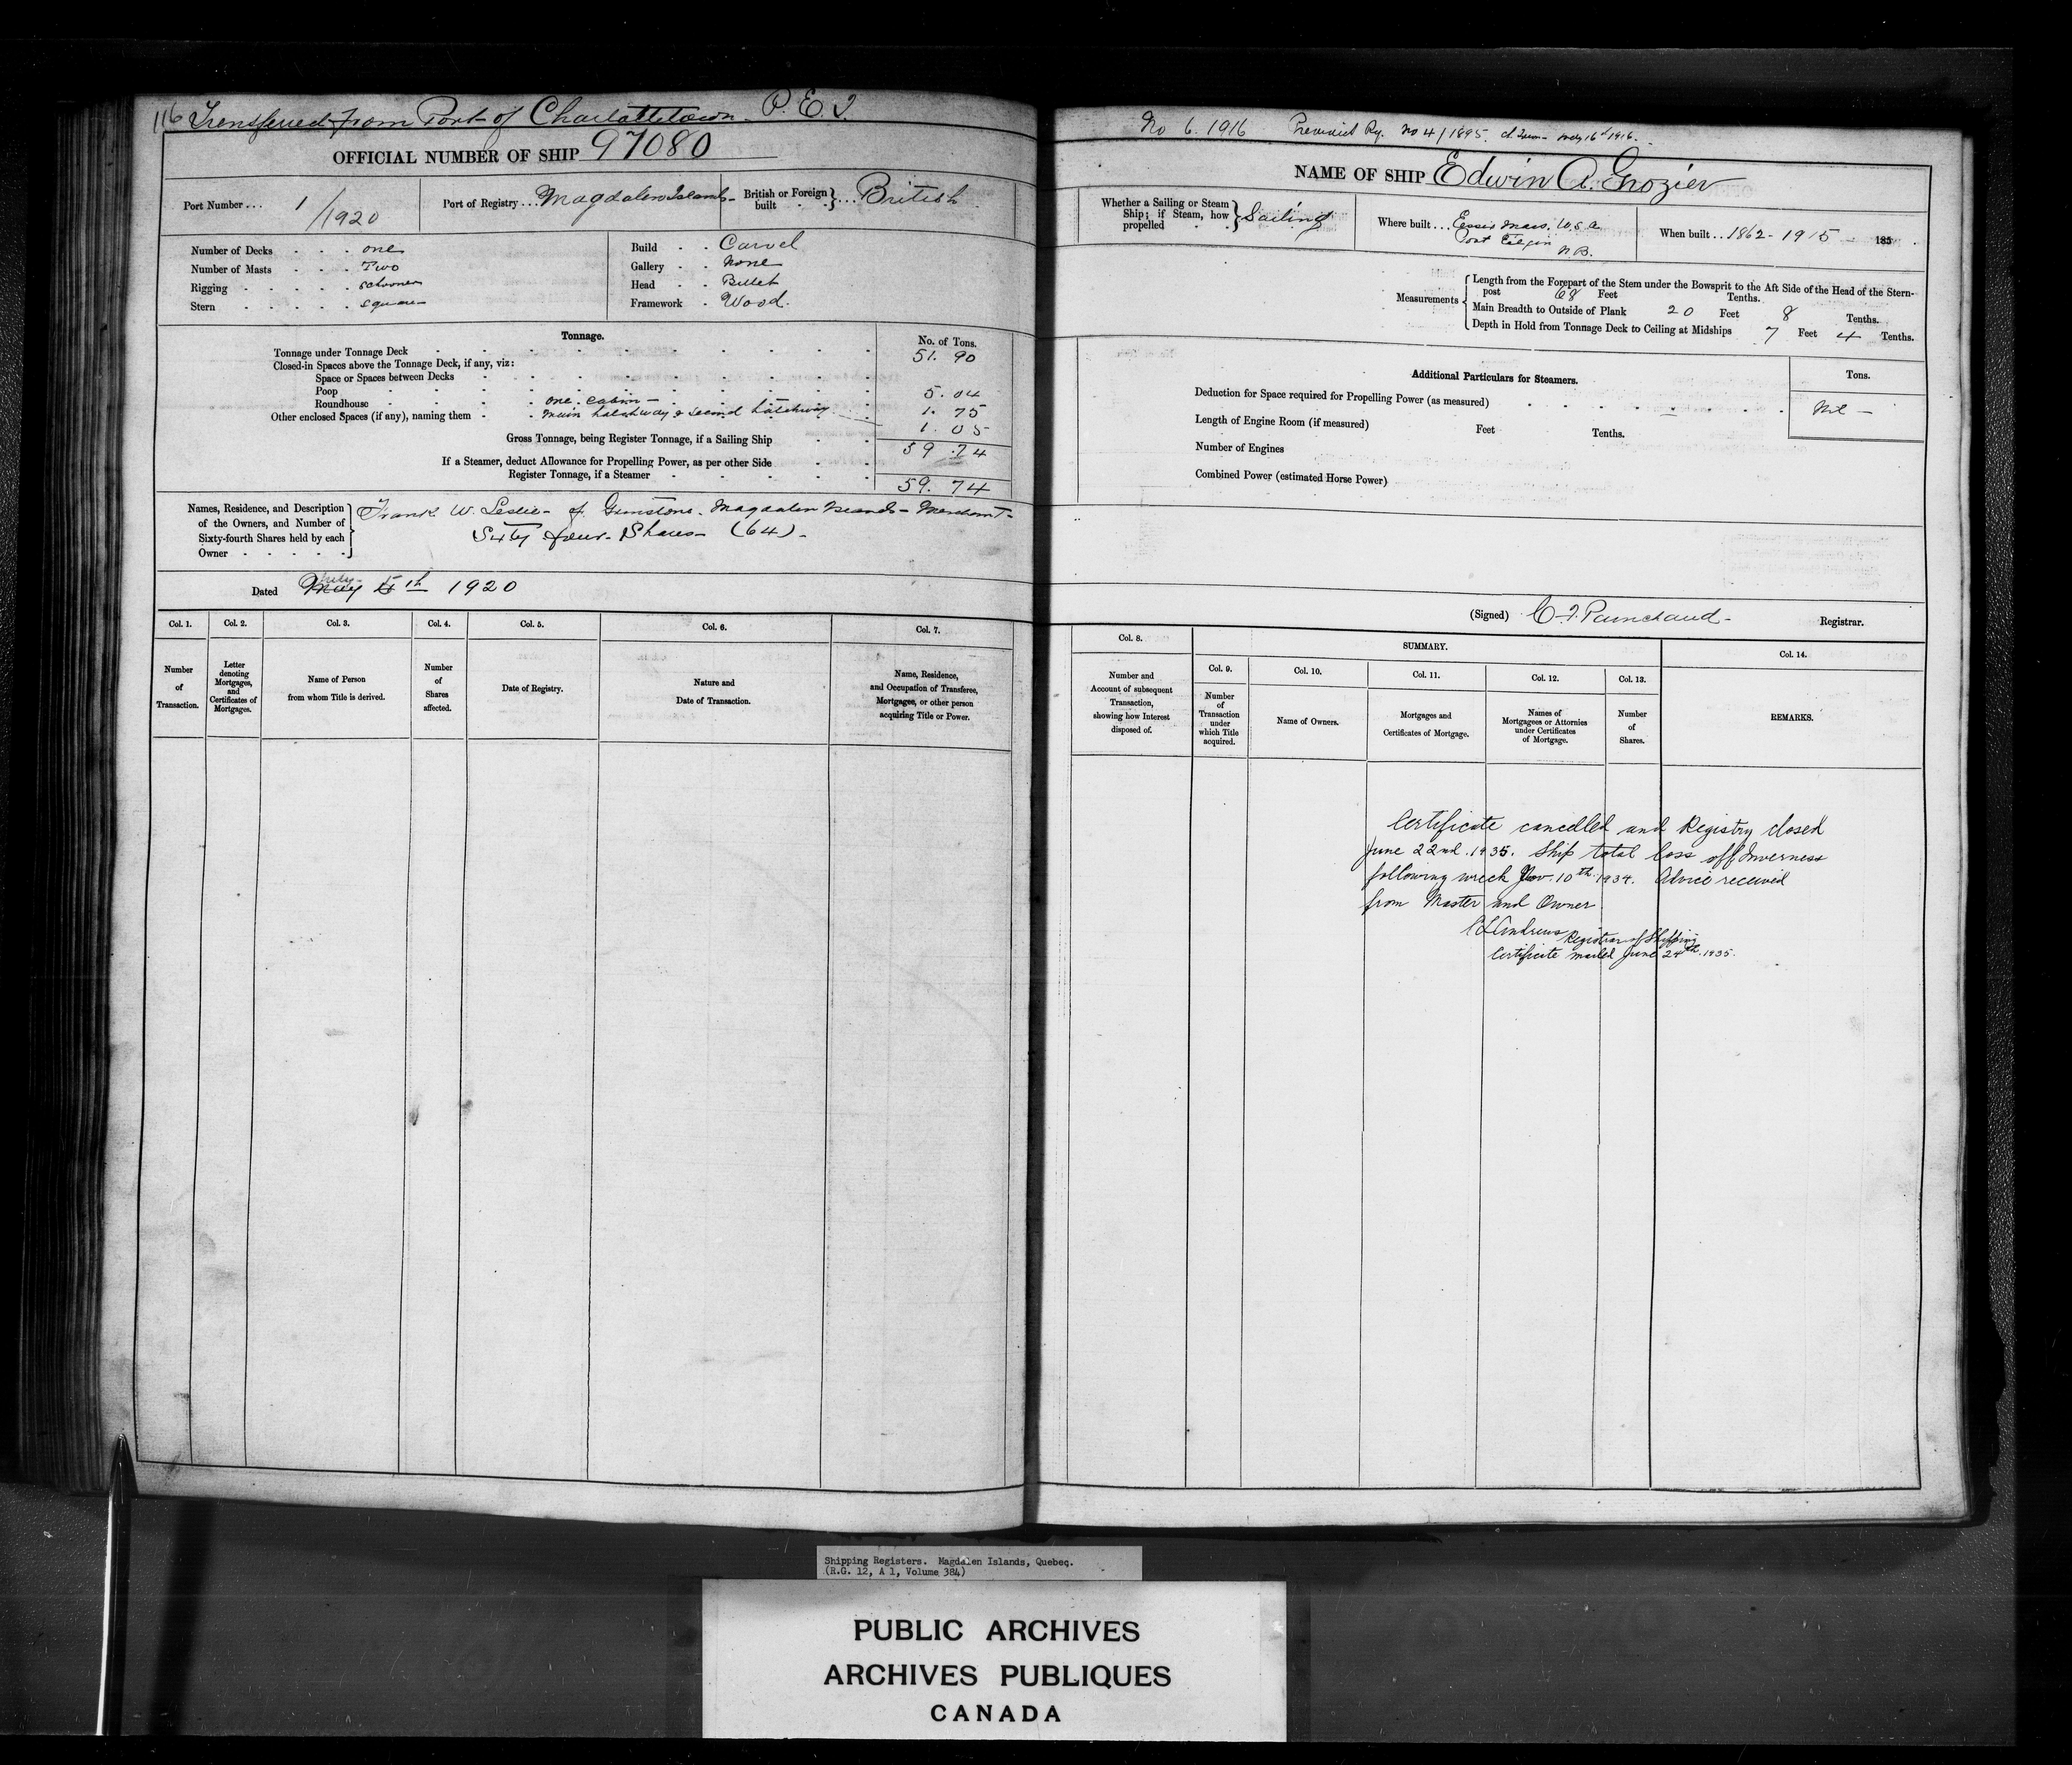 116 Transferred from Port of Charlottetown P.E.I.
OFFICIAL NUMBER OF SHIP 97080
Port Number... 1/1920
Port of Registry... Magdalen Islands
British or Foreign built } ... British
Number of Decks . . . one
Number of Masts . . . Two
Rigging . . . . . schooner
Stern . . . . . square
Build . . Carvel
Gallery . . None
Head . . Billet
Framework . Wood.
Tonnage.
No. of Tons.
Tonnage under Tonnage Deck 51. 90
Closed-in Spaces above the Tonnage Deck, if any, viz:
Space or Spaces between Decks
Poop 5. 04
Roundhouse one cabin 1. 75
Other enclosed Spaces (if any), naming them main hatchway & second hatchway 1. 05
Gross Tonnage, being Register Tonnage, if a Sailing Ship 59.74
If a Steamer, deduct Allowance for Propelling Power, as per other Side
Register Tonnage, if a Steamer 59. 74
Names, Residence, and Description of the Owners, and Number of Sixty-fourth Shares held by each Owner
Frank W. Leslie of Magdalen Islands Merchant
Sixty four Shares (64)
Dated May July 5th 1920
Col. 1. Col. 2. Col. 3. Col. 4. Col. 5. Col. 6. Col. 7.
Number of Transaction.
Letter denoting Mortgages, and Certificates of Mortgages.
Name of Person from whom Title is derived.
Number of Shares affected.
Date of Registry.
Nature and Date of Transaction.
Name, Residence, and Occupation of Transferee, Mortgagee, or other person acquiring Title or Power.
No 6. 1916 No 4/1895 1916.
NAME OF SHIP Edwin A. Grozier
Whether a Sailing or Steam Ship; if Steam, how propelled } Sailing
Where built... Essex Mass. U.S.A.
Port Elgin
N.B.
When built... 1862 - 1915 185
Measurements
Length from the Forepart of the Stem under the Bowsprit to the Aft Side of the Head of the Stern-
post 68 Feet Tenths.
Main Breadth to Outside of Plank 20 Feet 8 Tenths.
Depth in Hold from Tonnage Deck to Ceiling at Midships 7 Feet 4 Tenths.
Additional Particulars for Steamers.
Tons.
Deduction for Space required for Propelling Power (as measured) Nil
Length of Engine Room (if measured) Feet Tenths.
Number of Engines
Combined Power (estimated Horse Power)
(Signed) Registrar.
Col. 8.
SUMMARY.
Col. 14.
Col. 9. Col. 10. Col. 11. Col. 12. Col. 13.
Number and Account of subsequent Transaction, showing how Interest disposed of.
Number of Transaction under which Title acquired.
Name of Owners.
Mortgages and Certificates of Mortgage.
Names of Mortgagees or Attornies under Certificates of Mortgage.
Number of Shares.
REMARKS.
Certificate cancelled and Registry closed
June 22nd. 1935. Ship total loss off Inverness
following wreck Nov. 10th 1934. Advice received
from Master and Owner
Andrews Registrar of Shipping
Certificate mailed June 24th. 1935.
Shipping Registers. Magdalen Islands, Quebec.
(R.G. 12, A 1, Volume 384)
PUBLIC ARCHIVES
ARCHIVES PUBLIQUES
CANADA